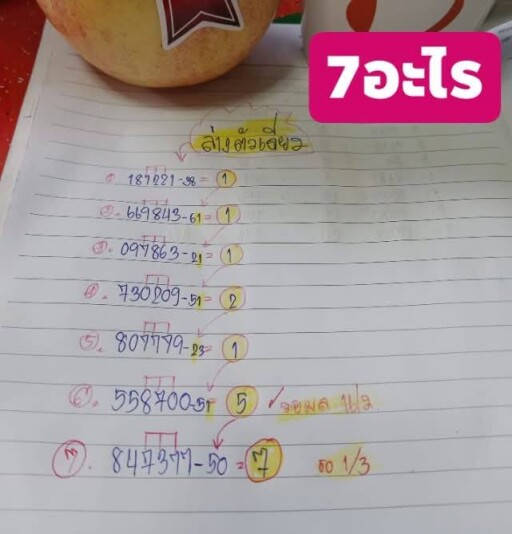 7อะไร
ล่างตัวเดียว
①. 187221-38= 1
②. 669843-61= 1
③. 097863-21= 1
④. 730209-51= 2
⑤. 807779-23= 1
⑥. 558700-51= 5 ✓ รอผล 1/2
⑦. 847377-50 = 7 รอ 1/3